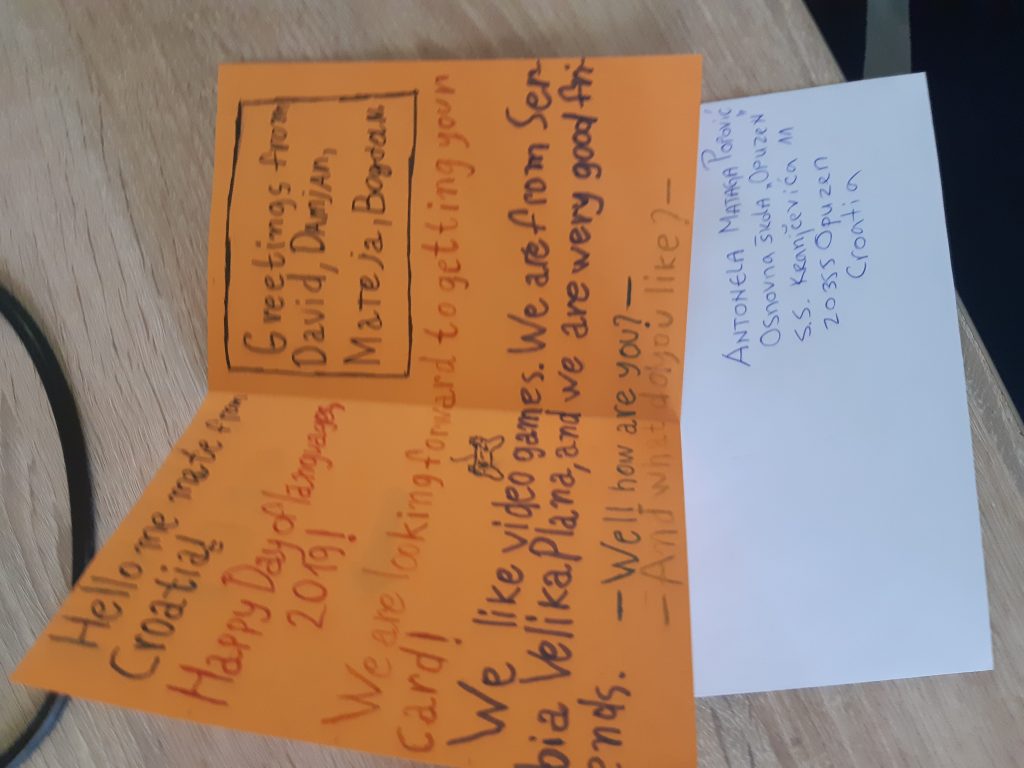 Hello me mate from
Croatia!
Happy Day of languages
2019!
We are looking forward to getting your
card!
We like video games. We are from Ser-
bia Velika Plana, and we are wery good fri-
ends.
— Well how are you? —
— And what do you like? —
Greetings from
David, DAMJAN,
MATEJA, BOGDAN
ANTONELA MATAGA POPOVIĆ
OSNOVNA ŠKOLA „OPUZEN"
S.S. KRANJČEVIĆA 11
20355 OPUZEN
CROATIA